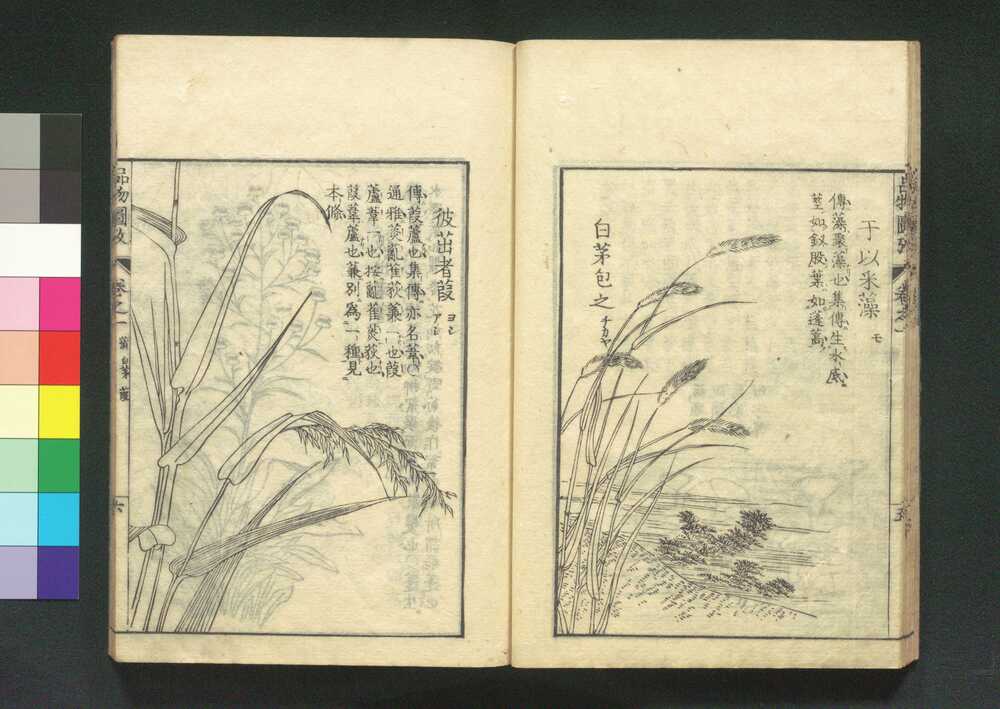 于以采藻 モ
傳藻聚藻也集傳生水底
莖如釵股葉如蓬蒿
白茅包之 チガヤ
五
彼茁者葭 ヨシ アシ
傳葭蘆也集傳亦名葦
通雅菼薍萑荻蒹一也葭
蘆葦一也按薍萑菼荻也
葭葦蘆也蒹別為一種見
本條
品物圖攷
卷之一
葭
六